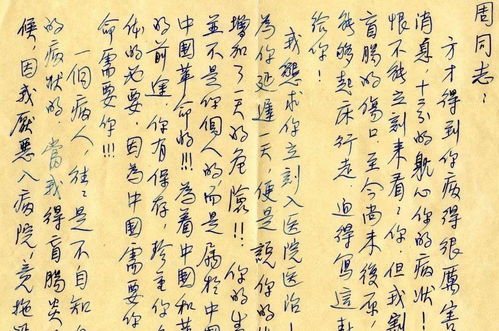 周同志：
方才得到你病得很厲害
消息，十二分的耽心你的病狀！
恨不能立刻来看々你，但我割
盲腸的傷口，至今尚未後原
能够起床行走，迫得寫這
給你！
我懇求你立刻入医院医治！
為你延遲一天，便是説你的
增加了一天的危險!!!你的生
並不是你個人的，而是屬於中
中國革命的!!!為着中國和
的前途，你有保存，珍重你
体的必要，因為中國需要你
命需要你!!!
一個病人往々是不自知自
的病狀的，當我得盲腸炎
候，因我厭惡入病院，竟拖